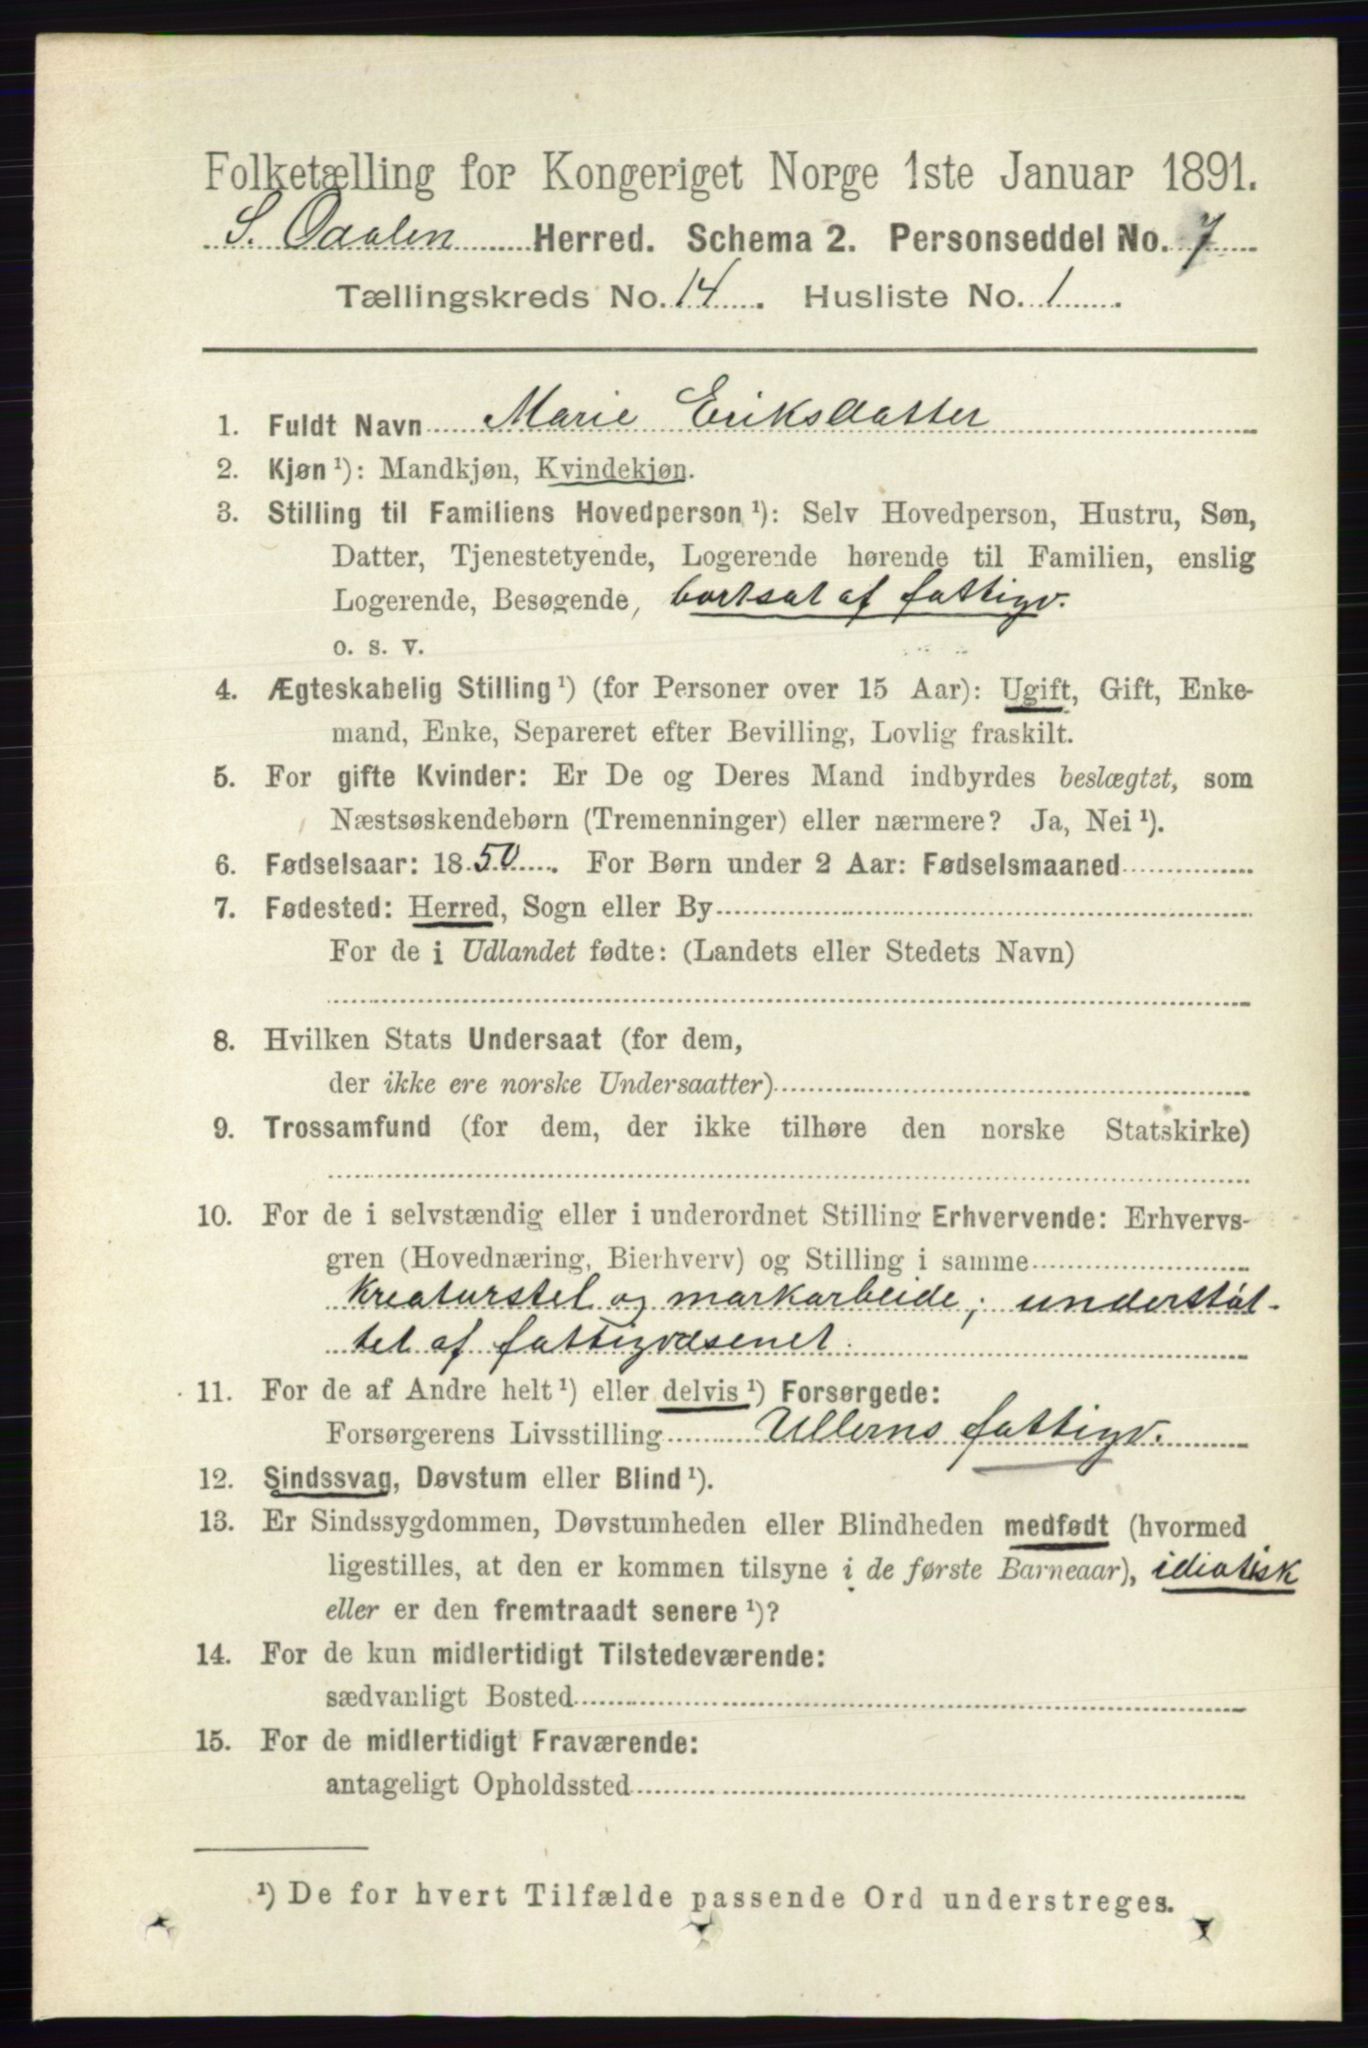 Folketælling for Kongeriget Norge 1ste Januar 1891.
S. Odalen Herred. Schema 2. Personseddel No. 7
Tællingskreds No. 14. Husliste No. 1.
1. Fuldt Navn Marie Eriksdatter
2. Kjøn ¹): Mandkjøn, Kvindekjøn.
3. Stilling til Familiens Hovedperson ¹): Selv Hovedperson, Hustru, Søn,
Datter, Tjenestetyende, Logerende hørende til Familien, enslig
Logerende, Besøgende, bortsat af fattigv.
o. s. v.
4. Ægteskabelig Stilling ¹) (for Personer over 15 Aar): Ugift, Gift, Enke-
mand, Enke, Separeret efter Bevilling, Lovlig fraskilt.
5. For gifte Kvinder: Er De og Deres Mand indbyrdes beslægtet, som
Næstsøskendebørn (Tremenninger) eller nærmere? Ja, Nei ¹).
6. Fødselsaar: 1850. For Børn under 2 Aar: Fødselsmaaned
7. Fødested: Herred, Sogn eller By
For de i Udlandet fødte: (Landets eller Stedets Navn)
8. Hvilken Stats Undersaat (for dem,
der ikke ere norske Undersaatter)
9. Trossamfund (for dem, der ikke tilhøre den norske Statskirke)
10. For de i selvstændig eller i underordnet Stilling Erhvervende: Erhvervs-
gren (Hovednæring, Bierhverv) og Stilling i samme
kreaturstel og markarbeide; understøt-
tet af fattigvæsenet.
11. For de af Andre helt ¹) eller delvis ¹) Forsørgede:
Forsørgerens Livsstilling Ullerns fattigv.
12. Sindssvag, Døvstum eller Blind ¹).
13. Er Sindssygdommen, Døvstumheden eller Blindheden medfødt (hvormed
ligestilles, at den er kommen tilsyne i de første Barneaar), idiotisk
eller er den fremtraadt senere ¹)?
14. For de kun midlertidigt Tilstedeværende:
sædvanligt Bosted
15. For de midlertidigt Fraværende:
antageligt Opholdssted
¹) De for hvert Tilfælde passende Ord understreges.